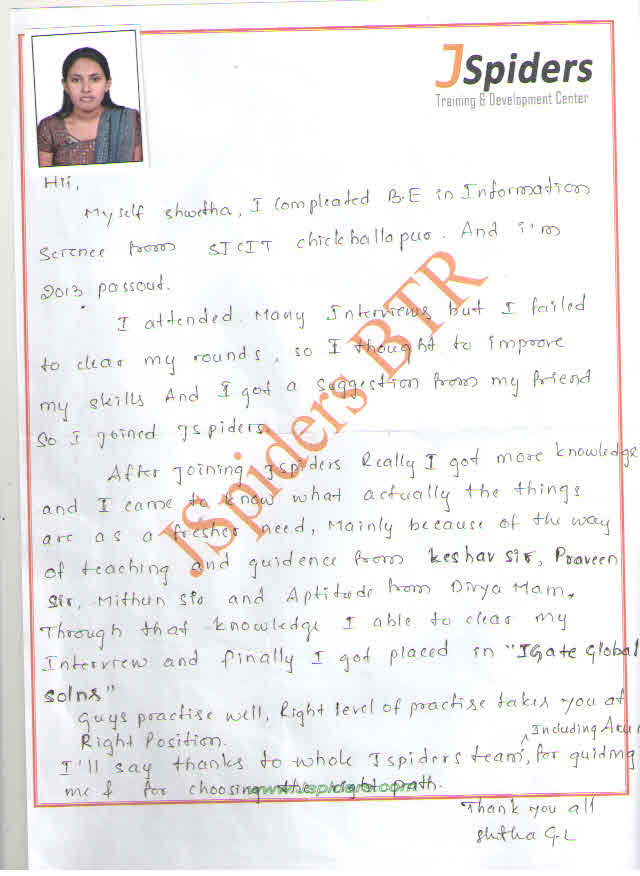 JSpiders
Training & Development Center
Hii,
Myself shwetha, I Compleated B.E in Information
Science from SJCIT chickballapur. And i'm
2013 passout.
I attended Many Interviews but I failed
to clear my rounds, so I thought to improve
my skills And I got a suggestion from my friend
So I joined Jspiders.
After joining Jspiders Really I got more knowledge
and I came to know what actually the things
are as a fresher need, Mainly because of the way
of teaching and guidence from keshav sir, Praveen
Sir, Mithun Sir and Aptitude from Divya Mam,
Through that knowledge I able to clear my
Interview and finally I got placed in "IGate Global
Solns"
Guys practise well, Right level of practise takes you at
Right Position.
Including
I'll say thanks to whole Jspiders team, for guiding
me & for choosing the right path.
Thank you all
G.L
JSpiders BTR